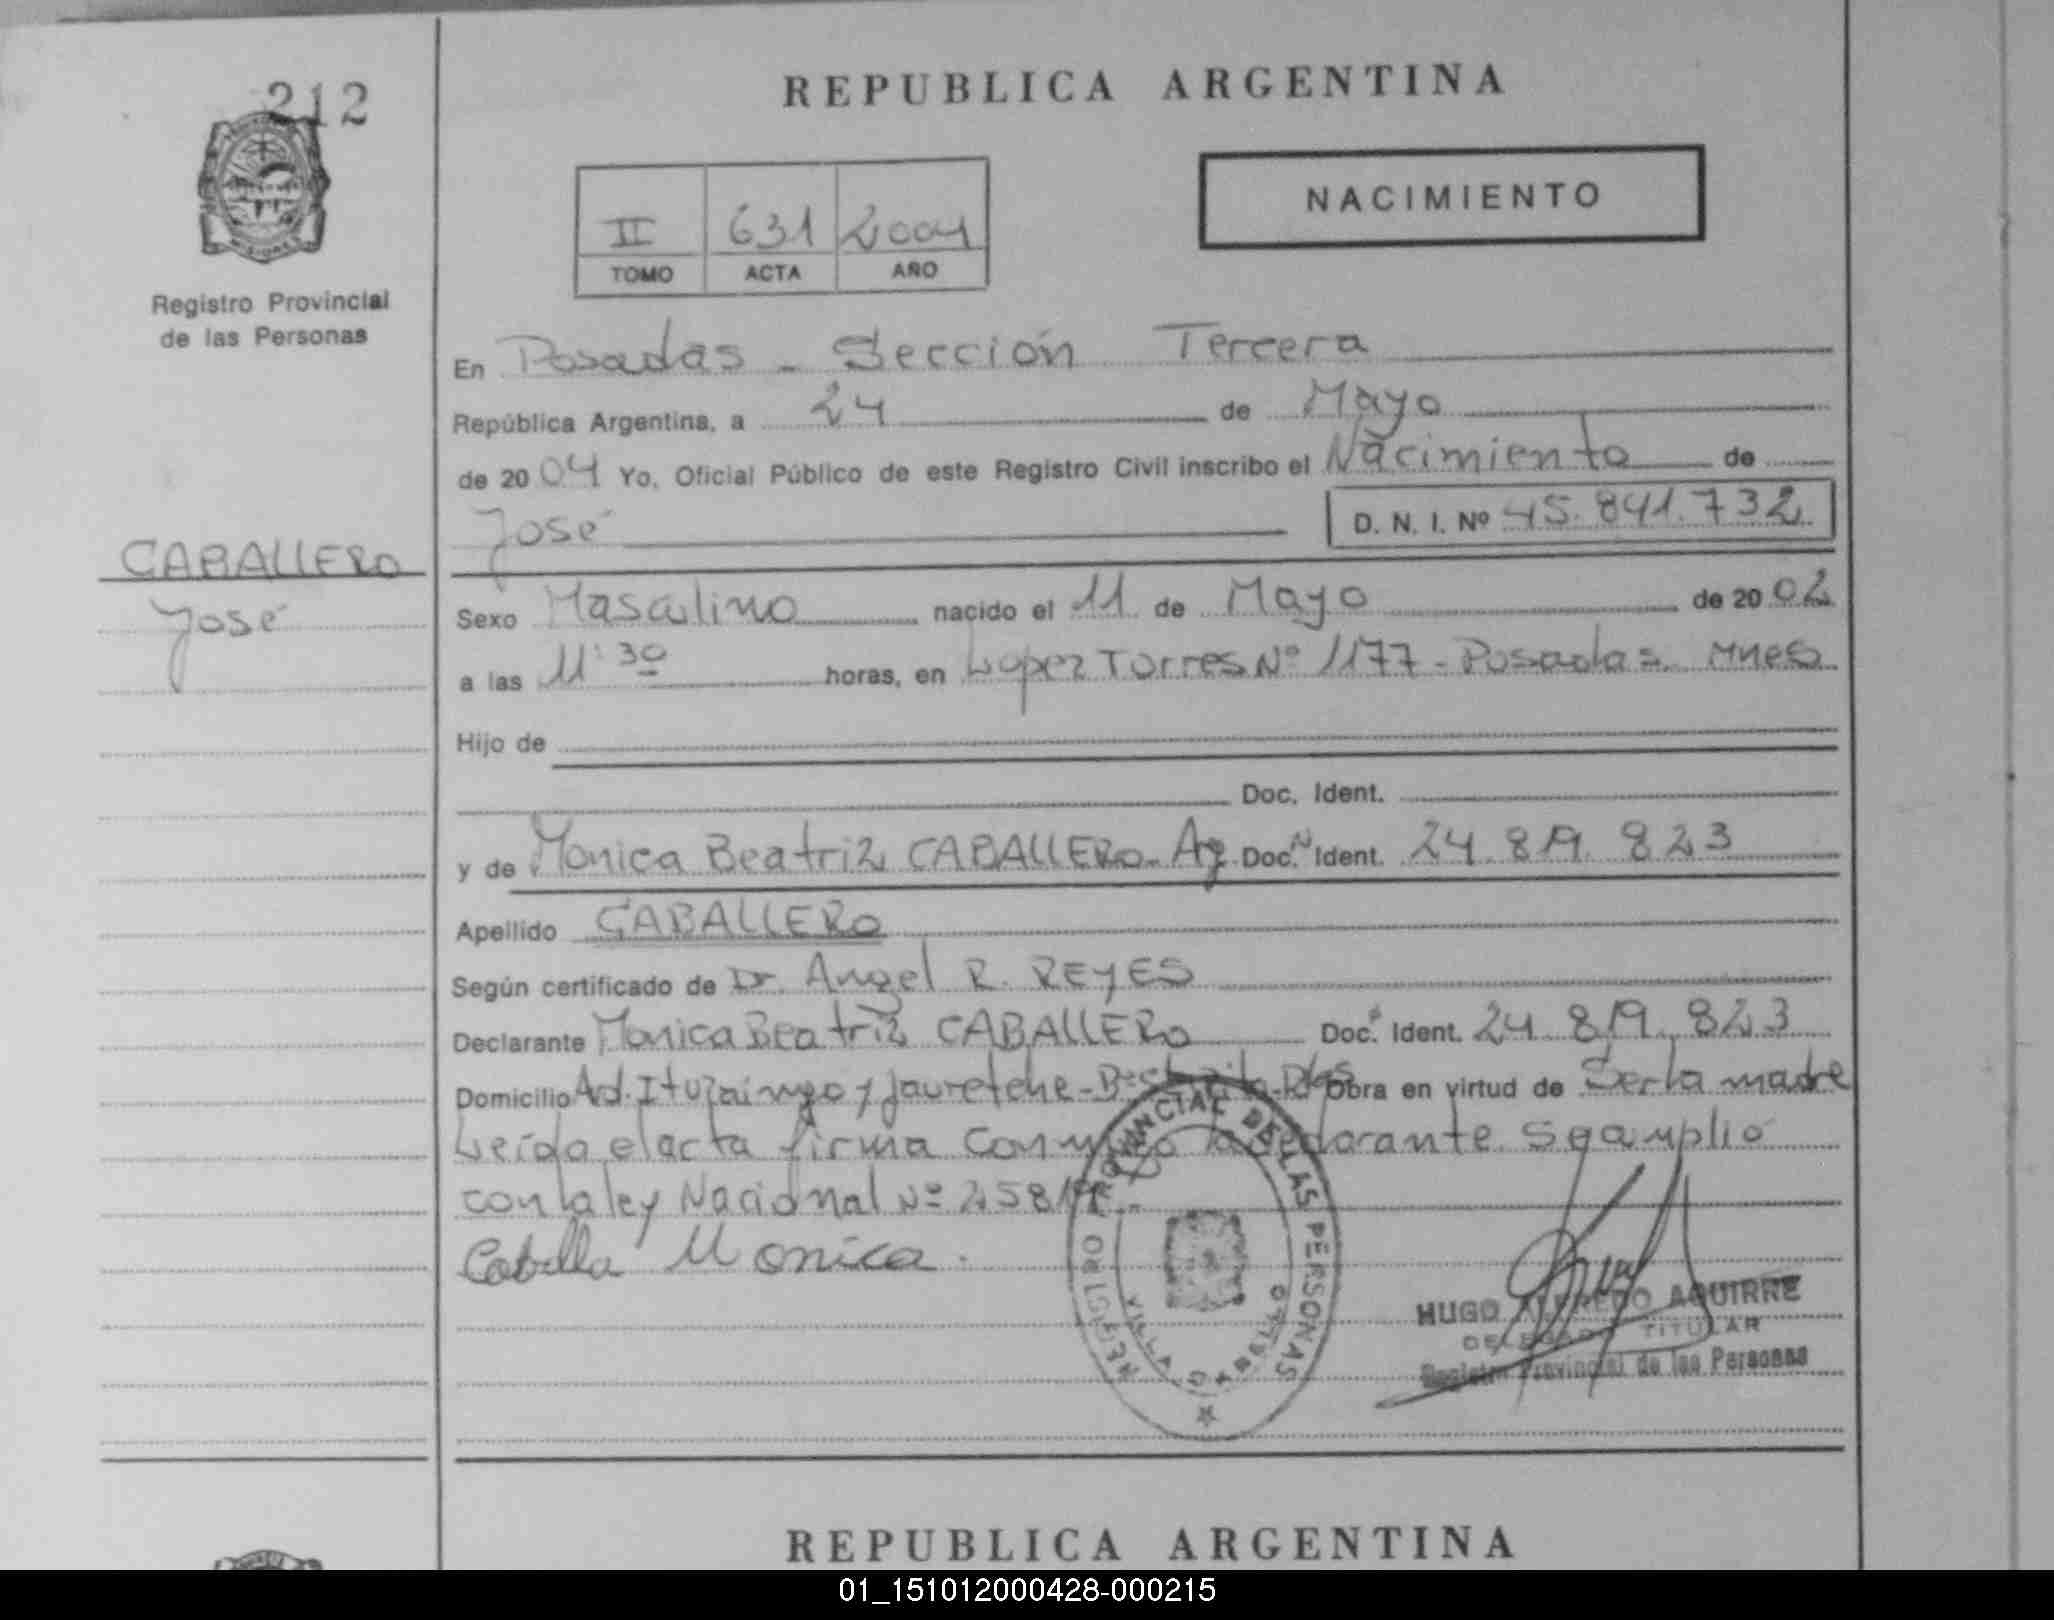 212
Registro Provincial
de las Personas
CABALLERO
José
REPUBLICA ARGENTINA
II 631 2004
TOMO ACTA AÑO
NACIMIENTO
En Posadas - Sección Tercera
República Argentina, a 24 de Mayo
de 2004 Yo, Oficial Público de este Registro Civil inscribo el Nacimiento de
José D. N. I. Nº 45.841.732
Sexo Masculino nacido el 11 de Mayo de 2002
a las 11:30 horas, en Lopez Torres Nº 1177 - Posadas Mnes
Hijo de
Doc. Ident.
y de Monica Beatriz CABALLERO - Arg. Doc. Ident. 24.819.823
Apellido CABALLERO
Según certificado de Dr. Angel R. REYES
Declarante Monica Beatriz CABALLERO Doc. Ident. 24.819.823
Domicilio Ad. Ituzaingo y Jauretche - Obra en virtud de Ser la madre
Leída el acta firma conmigo la declarante
con la ley Nacional Nº
Monica
REGISTRO PROVINCIAL DE LAS PERSONAS
VILLA CABELLO
HUGO ALFREDO AGUIRRE
DELEGADO TITULAR
Registro Provincial de las Personas
REPUBLICA ARGENTINA
01_151012000428-000215